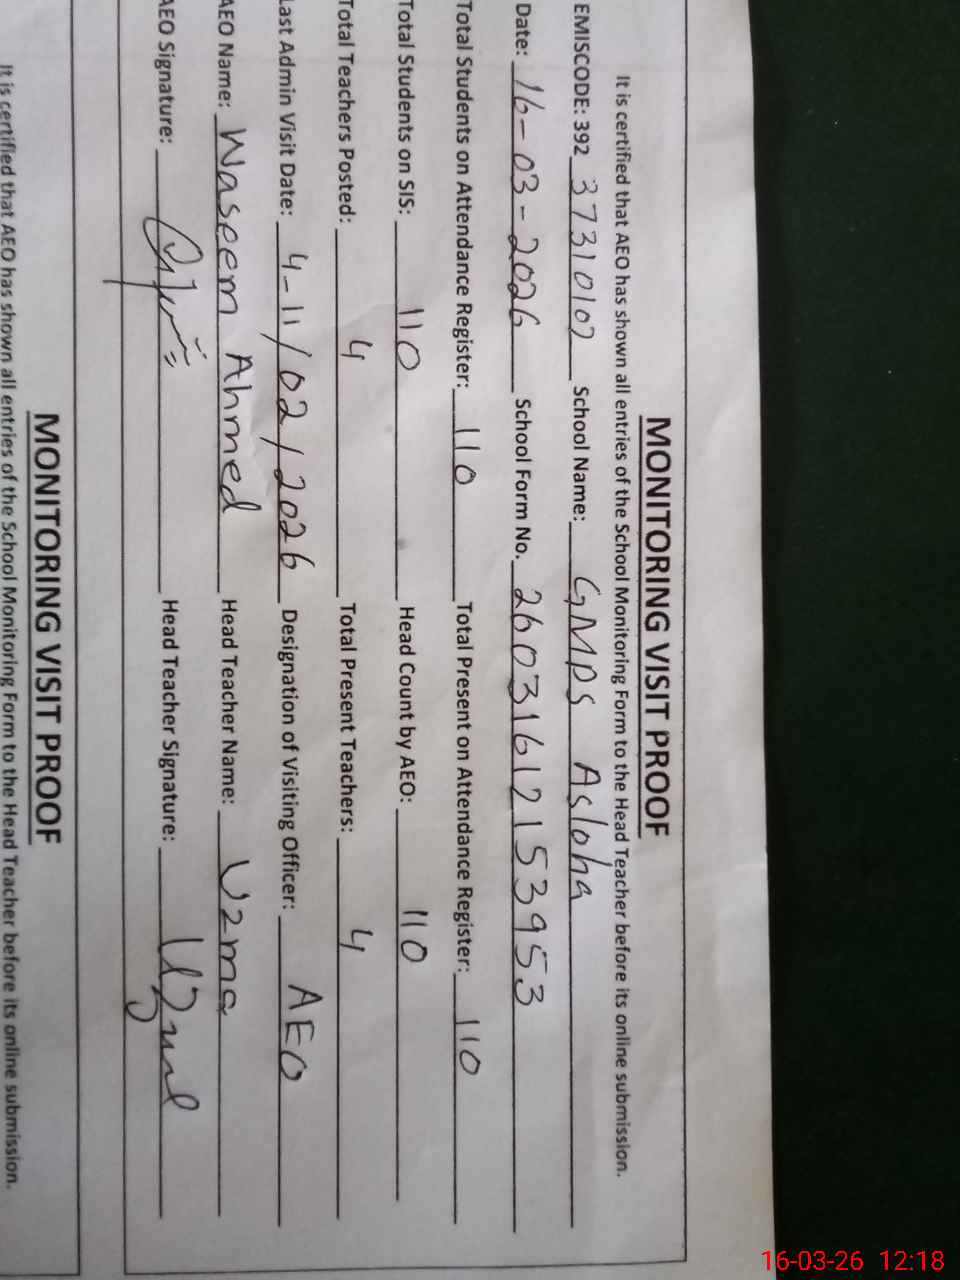 MONITORING VISIT PROOF
It is certified that AEO has shown all entries of the School Monitoring Form to the Head Teacher before its online submission.
EMISCODE: 392 37310102 School Name: GMPS Asloha
Date: 16-03-2026 School Form No. 26031612153953
Total Students on Attendance Register: 110 Total Present on Attendance Register: 110
Total Students on SIS: 110 Head Count by AEO: 110
Total Teachers Posted: 4 Total Present Teachers: 4
Last Admin Visit Date: 4-11/02/2026 Designation of Visiting Officer: AEO
AEO Name: Waseem Ahmed Head Teacher Name: Uzma
AEO Signature: Head Teacher Signature:
MONITORING VISIT PROOF
It is certified that AEO has shown all entries of the School Monitoring Form to the Head Teacher before its online submission.
16-03-26 12:18